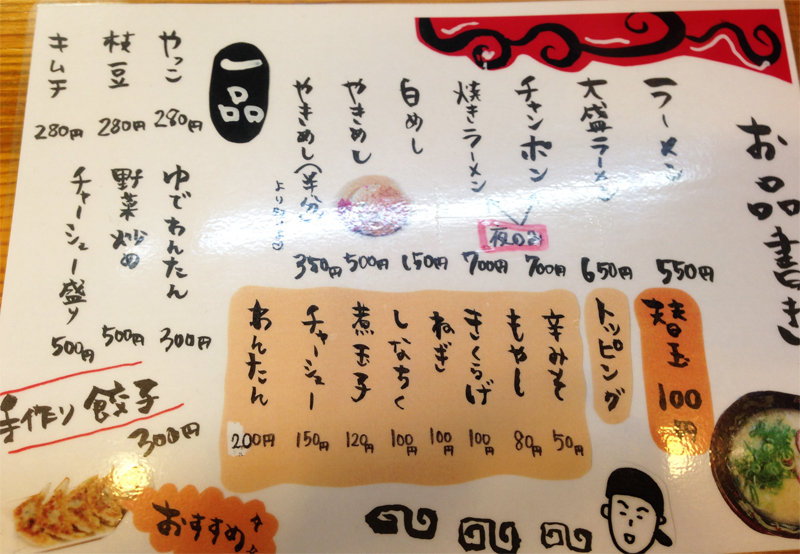 お品書き
ラーメン 550円
大盛ラーメン 650円
チャンポン 700円
焼きラーメン 700円
夜のみ
白めし 150円
やきめし 500円
やきめし(半分) 350円
替玉 100円
トッピング
辛みそ 50円
もやし 80円
きくらげ 100円
ねぎ 100円
しなちく 100円
煮玉子 120円
チャーシュー 150円
わんたん 200円
一品
やっこ 280円
枝豆 280円
キムチ 280円
ゆでわんたん 300円
野菜炒め 500円
チャーシュー盛り 500円
手作り餃子
300円
おすすめ